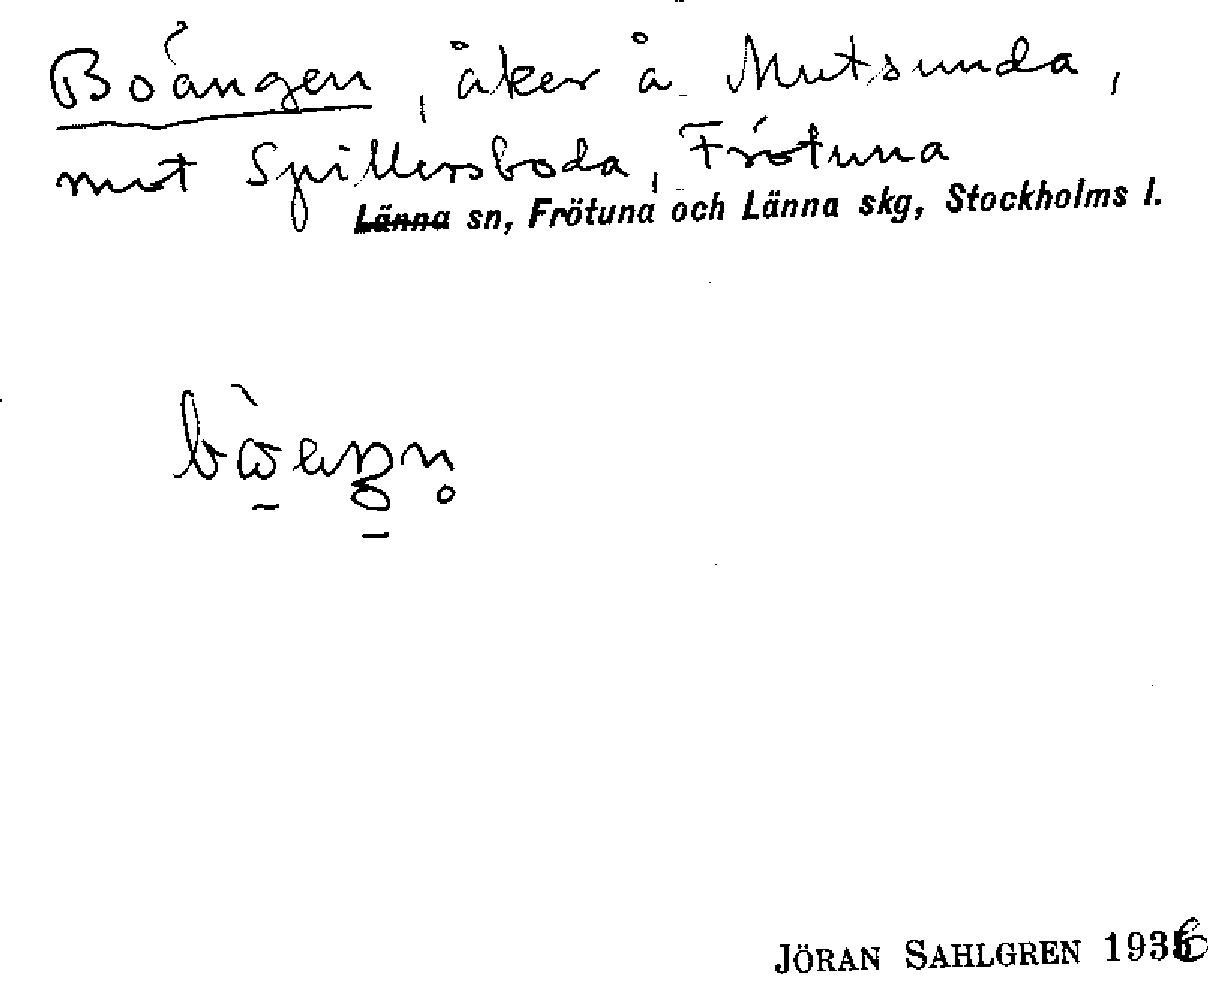 Boängen, åker å Mutsunda,
mot Spillersboda, Frötuna
Länna sn, Frötuna och Länna skg, Stockholms l.
JÖRAN SAHLGREN 1936